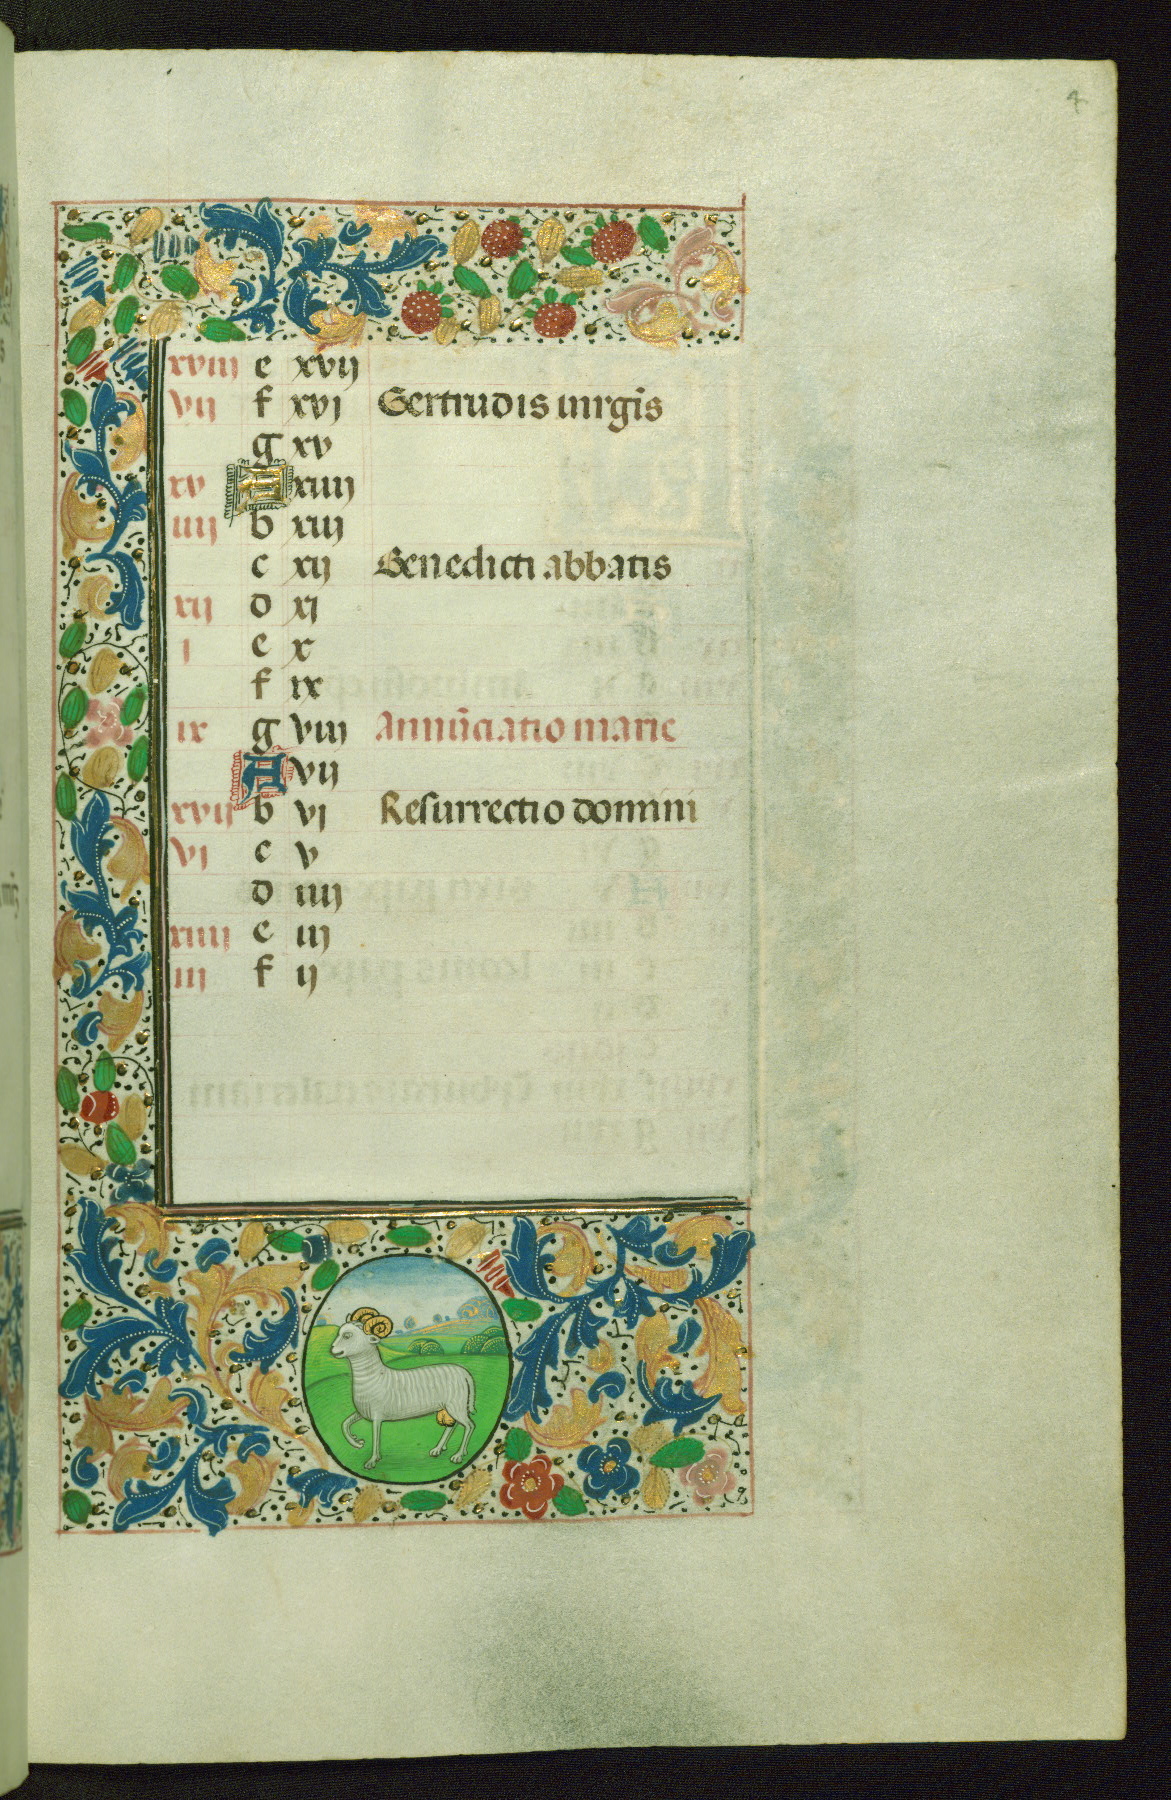 4
xviij e xvij
vij f xvj Gertrudis uirgĩs
g xv
xv A xiiij
iiij b xiij
c xij Benedicti abbatis
xij d xj
j e x
f ix
ix g viij Annũciatio marie
A vij
xvij b vj Resurrectio domini
vj c v
d iiij
xiiij e iij
iij f ij